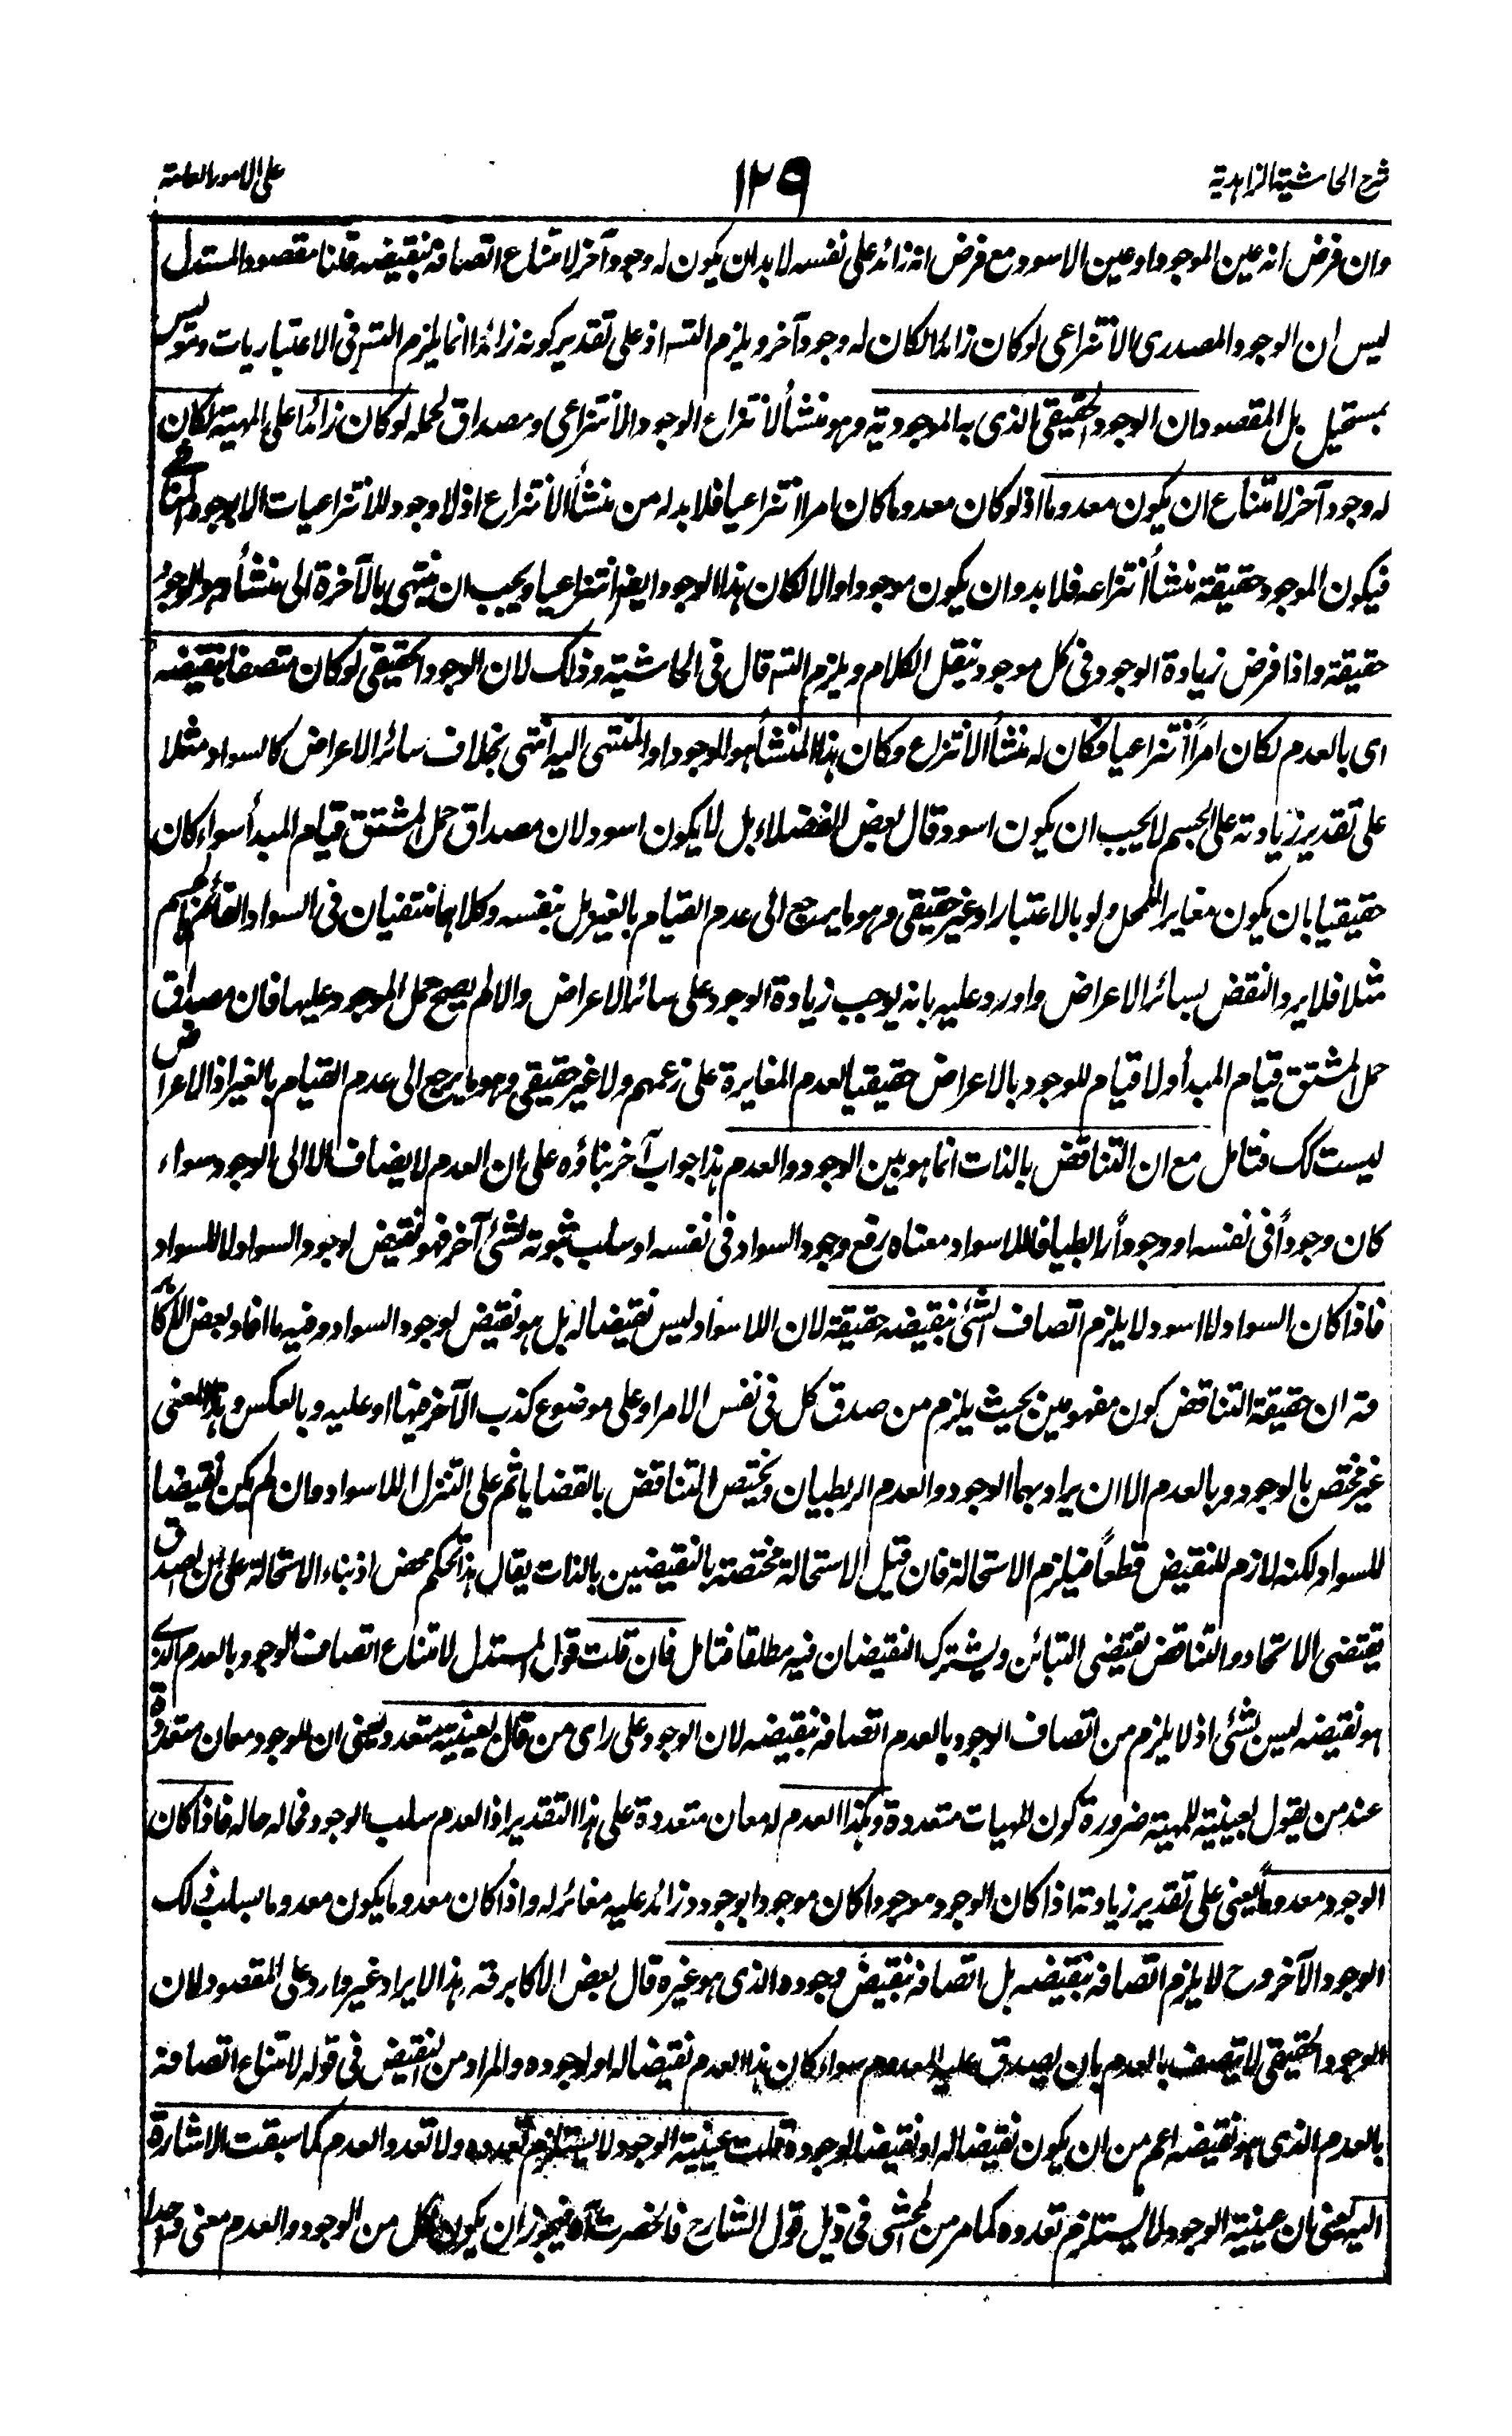 شرح الحاشية الزاهدية
١٢٩
على الامور العامة
وان فرض انه عين الموجود او عين الاسود مع فرض انه زائد على نفسه لا بد ان يكون له وجود آخر لامتناع اتصافه بنقيضه قلنا مقصود المستدل
ليس ان الوجود المصدرى الانتزاعى لو كان زائدا لكان له وجود آخر ويلزم التسه اذ على تقدير كونه زائدا انما يلزم التسه فى الاعتباريات وهو ليس
بمستحيل بل المقصود ان الوجود الحقيقى الذى به الموجودية وهو منشأ لانتزاع الوجود الانتزاعى ومصداق لحمله لو كان زائدا على المهية لكان
له وجود آخر لامتناع ان يكون معدوما اذ لو كان معدوما كان امرا انتزاعيا فلا بد له من منشأ الانتزاع اذ لا وجود للانتزاعيات الا بوجود المناشى
فيكون الموجود حقيقة منشأ انتزاعه فلا بد وان يكون موجودا والا لكان هذا الوجود ايضا انتزاعيا ويجب ان ينتهى بالآخرة الى منشأ هو الوجود
حقيقة واذا فرض زيادة الوجود فى كل موجود ينقل الكلام ويلزم التسه قال فى الحاشية وذلك لان الوجود الحقيقى لو كان متصفا بنقيضه
اى بالعدم لكان امراً انتزاعيا فكان له منشأ الانتزاع وكان هذا المنشأ هو الوجود او المنتهى اليه انتهى بخلاف سائر الاعراض كالسواد مثلا
على تقدير زيادته على الجسم لا يجب ان يكون اسود وقال بعض الفضلاء بل لا يكون اسود لان مصداق حمل المشتق قيام المبدأ سواء كان
حقيقيا بان يكون مغايرا للمحل ولو بالاعتبار او غير حقيقى وهو ما يرجع الى عدم القيام بالغير بل بنفسه وكلاهما منتفيان فى السواد القائم بالجسم
مثلا فلا يرد النقض بسائر الاعراض واورد عليه بانه يوجب زيادة الوجود على سائر الاعراض والا لم يصح حمل الموجود عليها فان مصداق
حمل المشتق قيام المبدأ ولا قيام للوجود بالاعراض حقيقيا لعدم المغايرة على زعمهم ولا غير حقيقى وهو ما يرجع الى عدم القيام بالغير اذ الاعراض
ليست كك فتامل مع ان التناقض بالذات انما هو بين الوجود والعدم هذا جواب آخر بناؤه على ان العدم لا يضاف الا الى الوجود سواء
كان وجوداً فى نفسه او وجوداً رابطيا فاللاسواد معناه رفع وجود السواد فى نفسه او سلب ثبوته لشئ آخر فهو نقيض لوجود السواد لا للسواد
فاذا كان السواد لا اسود لا يلزم اتصاف الشئ بنقيضه حقيقة لان اللاسواد ليس نقيضا له بل هو نقيض لوجود السواد وفيه ما افاد بعض الاكابر
قه ان حقيقة التناقض كون مفهومين بحيث يلزم من صدق كل فى نفس الامر او على موضوع كذب الآخر فيها او عليه وبالعكس وهذا المعنى
غير مختص بالوجود وبالعدم الا ان يراد بهما الوجود والعدم الربطيان ويختص التناقض بالقضايا ثم على التنزل اللاسواد وان لم يكن نقيضا
للسواد لكنه لازم للنقيض قطعاً فيلزم الاستحالة فان قيل الاستحالة مختصة بالنقيضين بالذات يقال هذا تحكم محض اذ بناء الاستحالة على ان الصدق
يقتضى الاتحاد والتناقض يقتضى التبائن ويشترك النقيضان فيه مطلقا فتامل فان قلت قول المستدل لامتناع اتصاف الوجود بالعدم الذى
هو نقيضه ليس بشئ اذ لا يلزم من اتصاف الوجود بالعدم اتصافه بنقيضه لان الوجود على راى من قال بعينيته متعدد يعنى ان للوجود معان متعددة
عند من يقول بعينيته للمهية ضرورة كون المهيات متعددة وكذا العدم له معان متعددة على هذا التقدير اذ العدم سلب الوجود فحاله حاله فاذا كان
الوجود معدوماً يعنى على تقدير زيادته اذا كان الوجود موجودا كان موجودا بوجود زائد عليه مغائر له واذا كان معدوما يكون معدوما بسلب ذلك
الوجود الآخر وح لا يلزم اتصافه بنقيضه بل اتصافه بنقيض وجوده الذى هو غيره قال بعض الاكابر قه هذا الايراد غير وارد على المقصود لان
الوجود الحقيقى لا يتصف بالعدم بان يصدق عليه المعدوم سواء كان هذا العدم نقيضا له او لوجوده والمراد من النقيض فى قوله لامتناع اتصافه
بالعدم الذى هو نقيضه اعم من ان يكون نقيضا له او نقيضا لوجوده قلت عينية الوجود لا يستلزم تعدده ولا تعدد العدم كما سبقت الاشارة
اليه يعنى ان عينية الوجود لا يستلزم تعدده كما مر من المحشى فى ذيل قول الشارح فانحصرت آه فيجوز ان يكون لكل من الوجود والعدم معنى واحدا